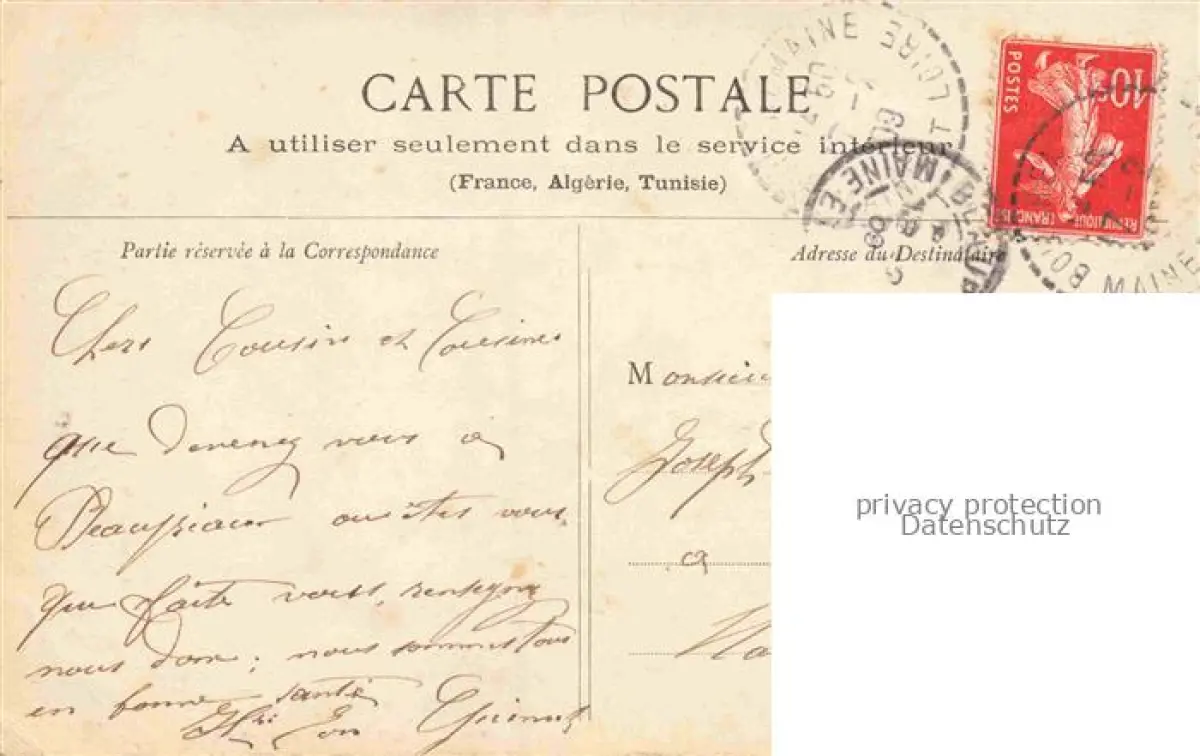 CARTE POSTALE
A utiliser seulement dans le service intérieur
(France, Algérie, Tunisie)
MAINE LOIRE
MAINE ET
09
POSTES
10c
REPUBLIQUE FRANÇAISE
MAINE
Partie réservée à la Correspondance
Adresse du Destinataire
Chers Cousin et Cousine
que devenez vous a
Beaupreau ou êtes vous
que faite vous, renseignez
nous donc; nous sommes tous
en bonne santé
Monsieu
Joseph
a
privacy protection
Datenschutz